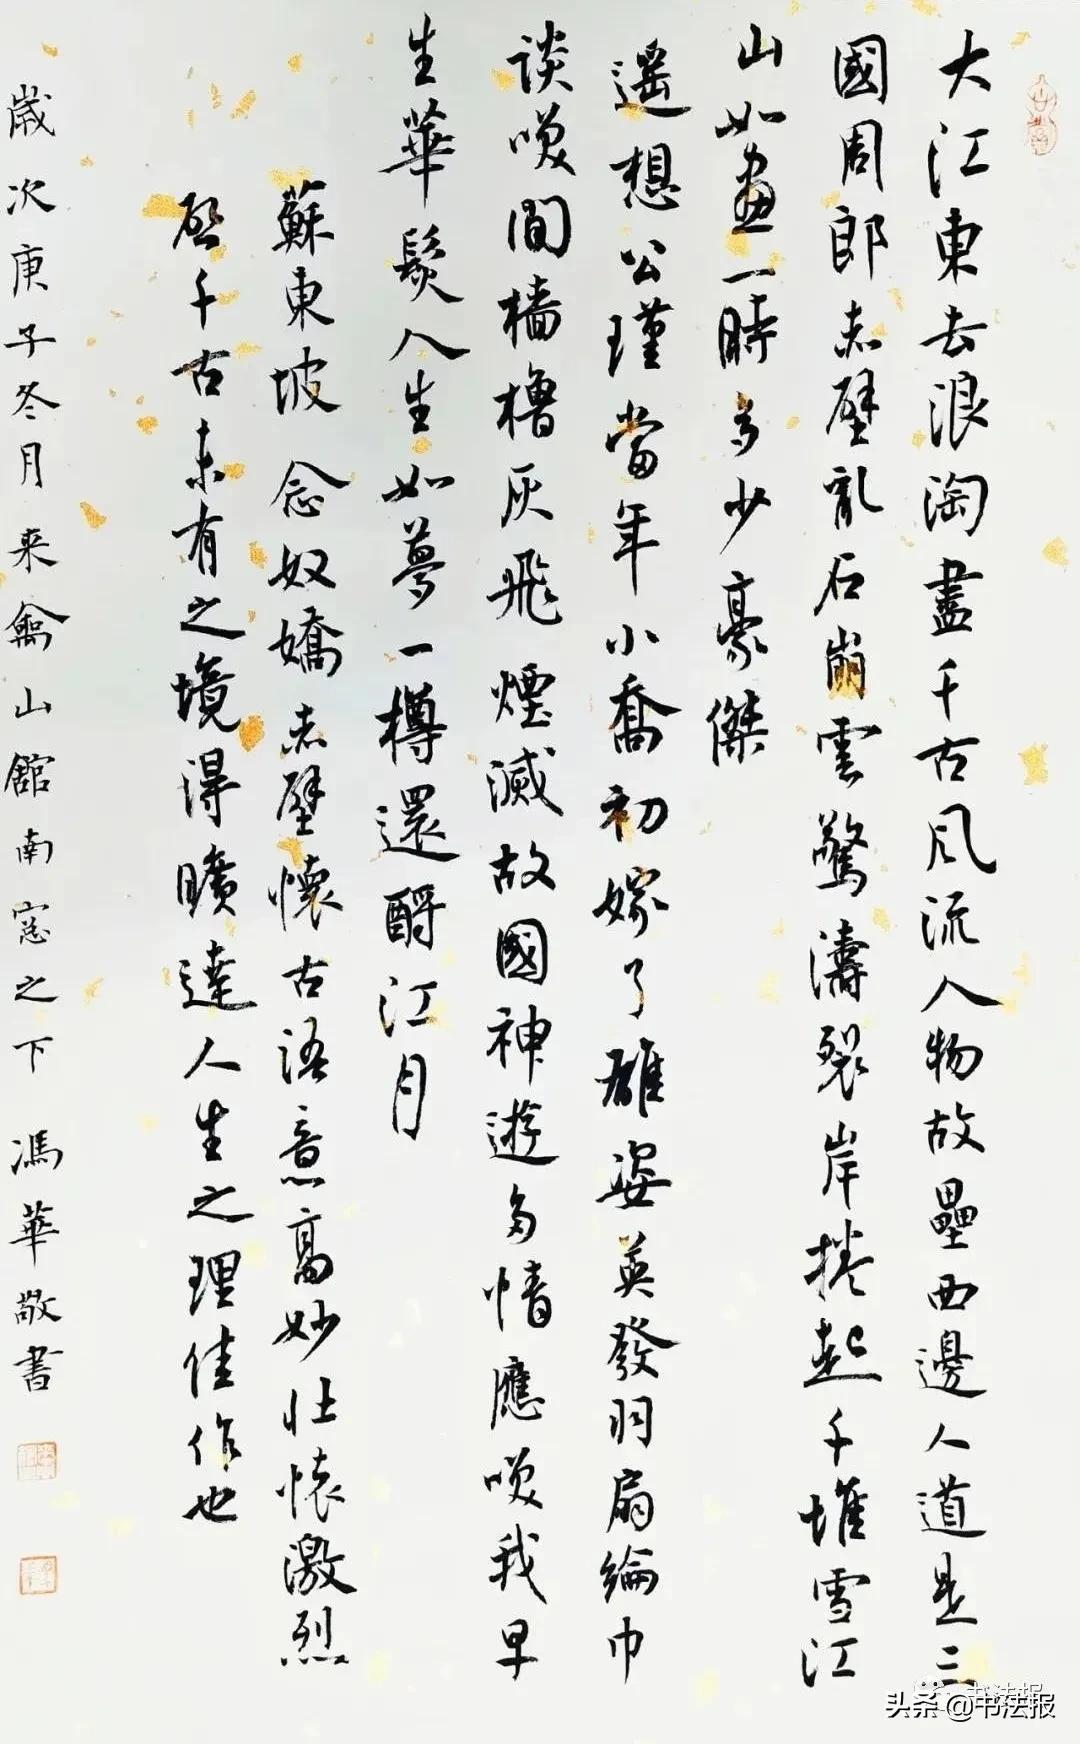 大江東去浪淘盡千古風流人物故壘西邊人道是三
國周郎赤壁亂石崩雲驚濤裂岸捲起千堆雪江
山如畫一時多少豪傑
遥想公瑾當年小喬初嫁了雄姿英發羽扇綸巾
談咲間檣櫓灰飛煙滅故國神遊多情應咲我早
生華髮人生如夢一樽還酹江月
蘇東坡 念奴嬌赤壁懷古語意高妙壯懷激烈
啟千古未有之境得曠達人生之理佳作也
歲次庚子冬月来禽山館南窓之下 馮華敬書
头条 @书法报